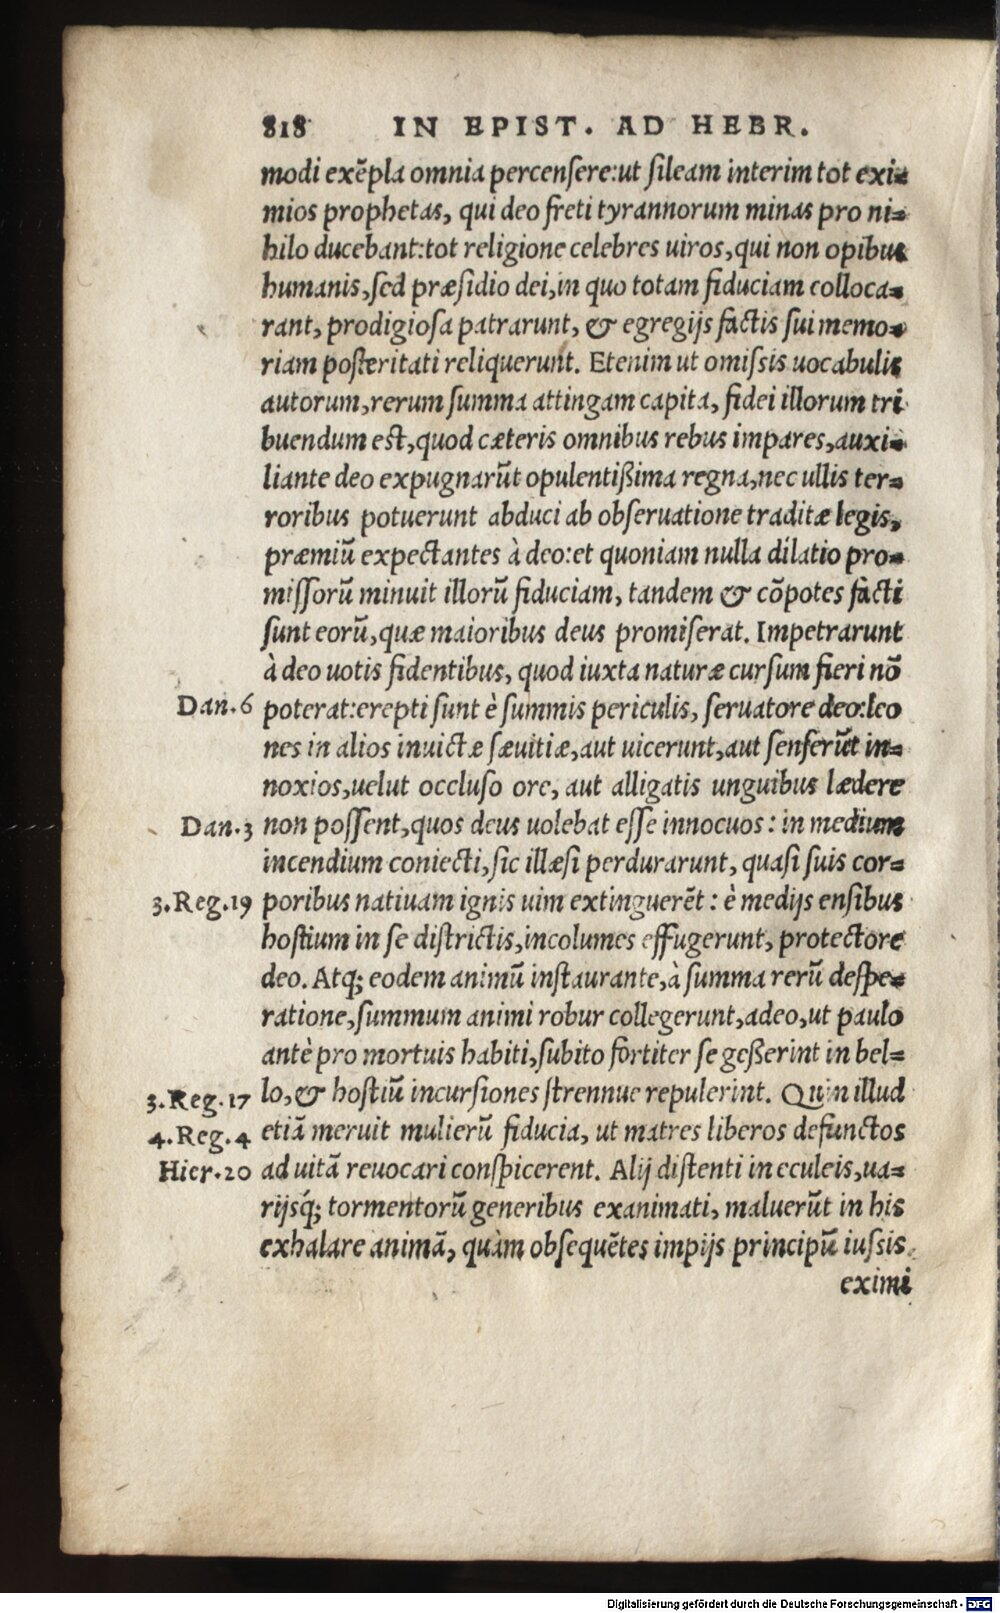 818 IN EPIST. AD HEBR.
modi exẽpla omnia percensere:ut sileam interim tot exi=
mios prophetas, qui deo freti tyrannorum minas pro ni=
hilo ducebant:tot religione celebres uiros,qui non opibus
humanis,sed præsidio dei,in quo totam fiduciam colloca=
rant, prodigiosa patrarunt, & egregijs factis sui memo=
riam posteritati reliquerunt. Etenim ut omissis uocabulis
autorum,rerum summa attingam capita, fidei illorum tri
buendum est,quod cæteris omnibus rebus impares,auxi=
liante deo expugnarũt opulentißima regna,nec ullis ter=
roribus potuerunt abduci ab obseruatione traditæ legis,
præmiũ expectantes à deo:et quoniam nulla dilatio pro=
missorũ minuit illorũ fiduciam, tandem & cõpotes facti
sunt eorũ,quæ maioribus deus promiserat. Impetrarunt
à deo uotis fidentibus, quod iuxta naturæ cursum fieri nõ
Dan.6 poterat:erepti sunt è summis periculis, seruatore deo:leo
nes in alios inuictæ sæuitiæ,aut uicerunt,aut senserũt in=
noxios,uelut occluso ore, aut alligatis unguibus lædere
Dan.3 non possent,quos deus uolebat esse innocuos: in medium
incendium coniecti,sic illæsi perdurarunt, quasi suis cor=
3.Reg.19 poribus natiuam ignis uim extinguerẽt: è medijs ensibus
hostium in se districtis,incolumes effugerunt, protectore
deo. Atq; eodem animũ instaurante,à summa rerũ despe=
ratione,summum animi robur collegerunt,adeo,ut paulo
antè pro mortuis habiti,subito fortiter se geßerint in bel=
3.Reg.17 lo,& hostiũ incursiones strennue repulerint. Quin illud
4.Reg.4 etiã meruit mulierũ fiducia, ut matres liberos defunctos
Hier.20 ad uitã reuocari conspicerent. Alij distenti in eculeis,ua=
rijsq́; tormentorũ generibus exanimati, maluerũt in his
exhalare animã, quàm obsequẽtes impijs principũ iussis
eximi
Digitalisierung gefördert durch die Deutsche Forschungsgemeinschaft - DFG